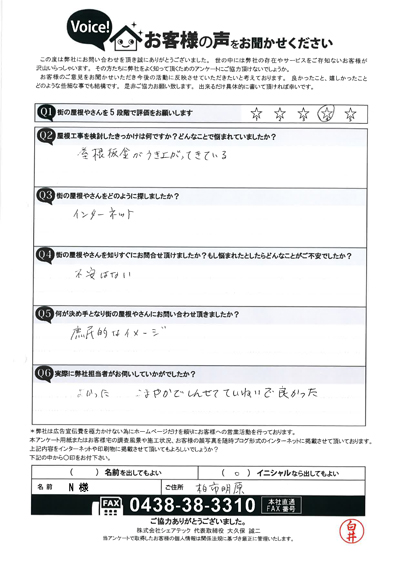 Voice!
お客様の声をお聞かせください
この度は弊社にお問い合わせを頂き誠にありがとうございました。世の中には弊社の存在やサービスをご存知ないお客様が
沢山いらっしゃいます。その方たちに弊社をよく知って頂くためのアンケートにご協力頂けないでしょうか。
お客様のご意見をお聞かせいただき今後の活動に反映させていただきたいと考えております。良かったこと、嬉しかったこと
どのような些細な事でも結構です。是非ご協力お願い致します。出来るだけ具体的に書いて頂ければ幸いです。
Q1 街の屋根やさんを5段階で評価をお願いします ☆ ☆ ☆ ☆ ☆
Q2 屋根工事を検討したきっかけは何ですか?どんなことで悩まれていましたか?
屋根板金がうき上がってきている
Q3 街の屋根やさんをどのように探しましたか?
インターネット
Q4 街の屋根やさんを知りすぐにお問合せ頂けましたか?もし悩まれたとしたらどんなことがご不安でしたか?
不安はない
Q5 何が決め手となり街の屋根やさんにお問い合わせ頂きましたか?
庶民的なイメージ
Q6 実際に弊社担当者がお伺いしていかがでしたか?
よかった こまやかでしんせてていねいで良かった
*弊社は広告宣伝費を極力かけない為にホームページだけを頼りにお客様への営業活動を行っております。
本アンケート用紙またはお客様宅の調査風景や施工状況、お客様の顔写真を随時ブログ形式のインターネットに掲載させて頂いております。
上記内容をインターネットや印刷物に掲載させて頂いてもよろしいでしょうか?
下記の中から〇印をお付下さい。
( )名前を出してもよい ( ○ )イニシャルなら出してもよい
名前 N 様 ご住所 柏市明原
FAX 0438-38-3310 本社直通 FAX番号
ご協力ありがとうございました。
株式会社シェアテック 代表取締役 大久保 誠二
当アンケートで取得したお客様の個人情報は関係法規に基づき厳正に管理いたします。
白井